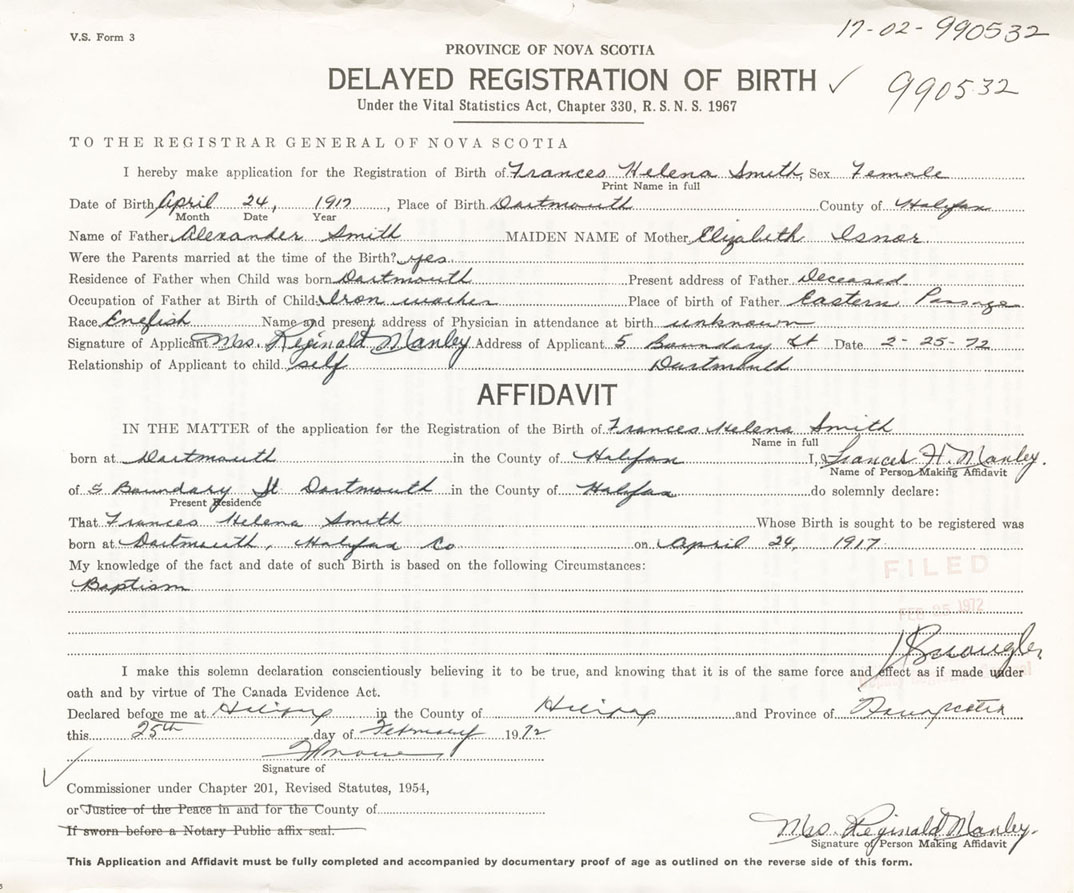 V.S. Form 3
17-02-990532
PROVINCE OF NOVA SCOTIA
DELAYED REGISTRATION OF BIRTH ✓
990532
Under the Vital Statistics Act, Chapter 330, R. S. N. S. 1967
TO THE REGISTRAR GENERAL OF NOVA SCOTIA
I hereby make application for the Registration of Birth of Frances Helena Smith, Sex Female
Print Name in full
Date of Birth April 24, 1917, Place of Birth Dartmouth County of Halifax
Month Date Year
Name of Father Alexander Smith MAIDEN NAME of Mother Elizabeth Isnor
Were the Parents married at the time of the Birth? yes
Residence of Father when Child was born Dartmouth Present address of Father Deceased
Occupation of Father at Birth of Child Iron Place of birth of Father Eastern Passage
Race English Name and present address of Physician in attendance at birth unknown
Signature of Applicant Mrs. Reginald Manley Address of Applicant 5 Boundary St Date 2-25-72
Relationship of Applicant to child self Dartmouth
AFFIDAVIT
IN THE MATTER of the application for the Registration of the Birth of Frances Helena Smith
Name in full
born at Dartmouth in the County of Halifax I, Frances H. Manley.
Name of Person Making Affidavit
of 5 Boundary St Dartmouth in the County of Halifax do solemnly declare:
Present Residence
That Frances Helena Smith Whose Birth is sought to be registered was
born at Dartmouth, Halifax Co on April 24, 1917
My knowledge of the fact and date of such Birth is based on the following Circumstances:
Baptism
FILED
FEB 25 1972
I make this solemn declaration conscientiously believing it to be true, and knowing that it is of the same force and effect as if made under
oath and by virtue of The Canada Evidence Act.
Declared before me at Halifax in the County of Halifax and Province of Nova Scotia
this 25th day of February 1972
Signature of
Commissioner under Chapter 201, Revised Statutes, 1954,
or Justice of the Peace in and for the County of
If sworn before a Notary Public affix seal.
Mrs. Reginald Manley.
Signature of Person Making Affidavit
This Application and Affidavit must be fully completed and accompanied by documentary proof of age as outlined on the reverse side of this form.